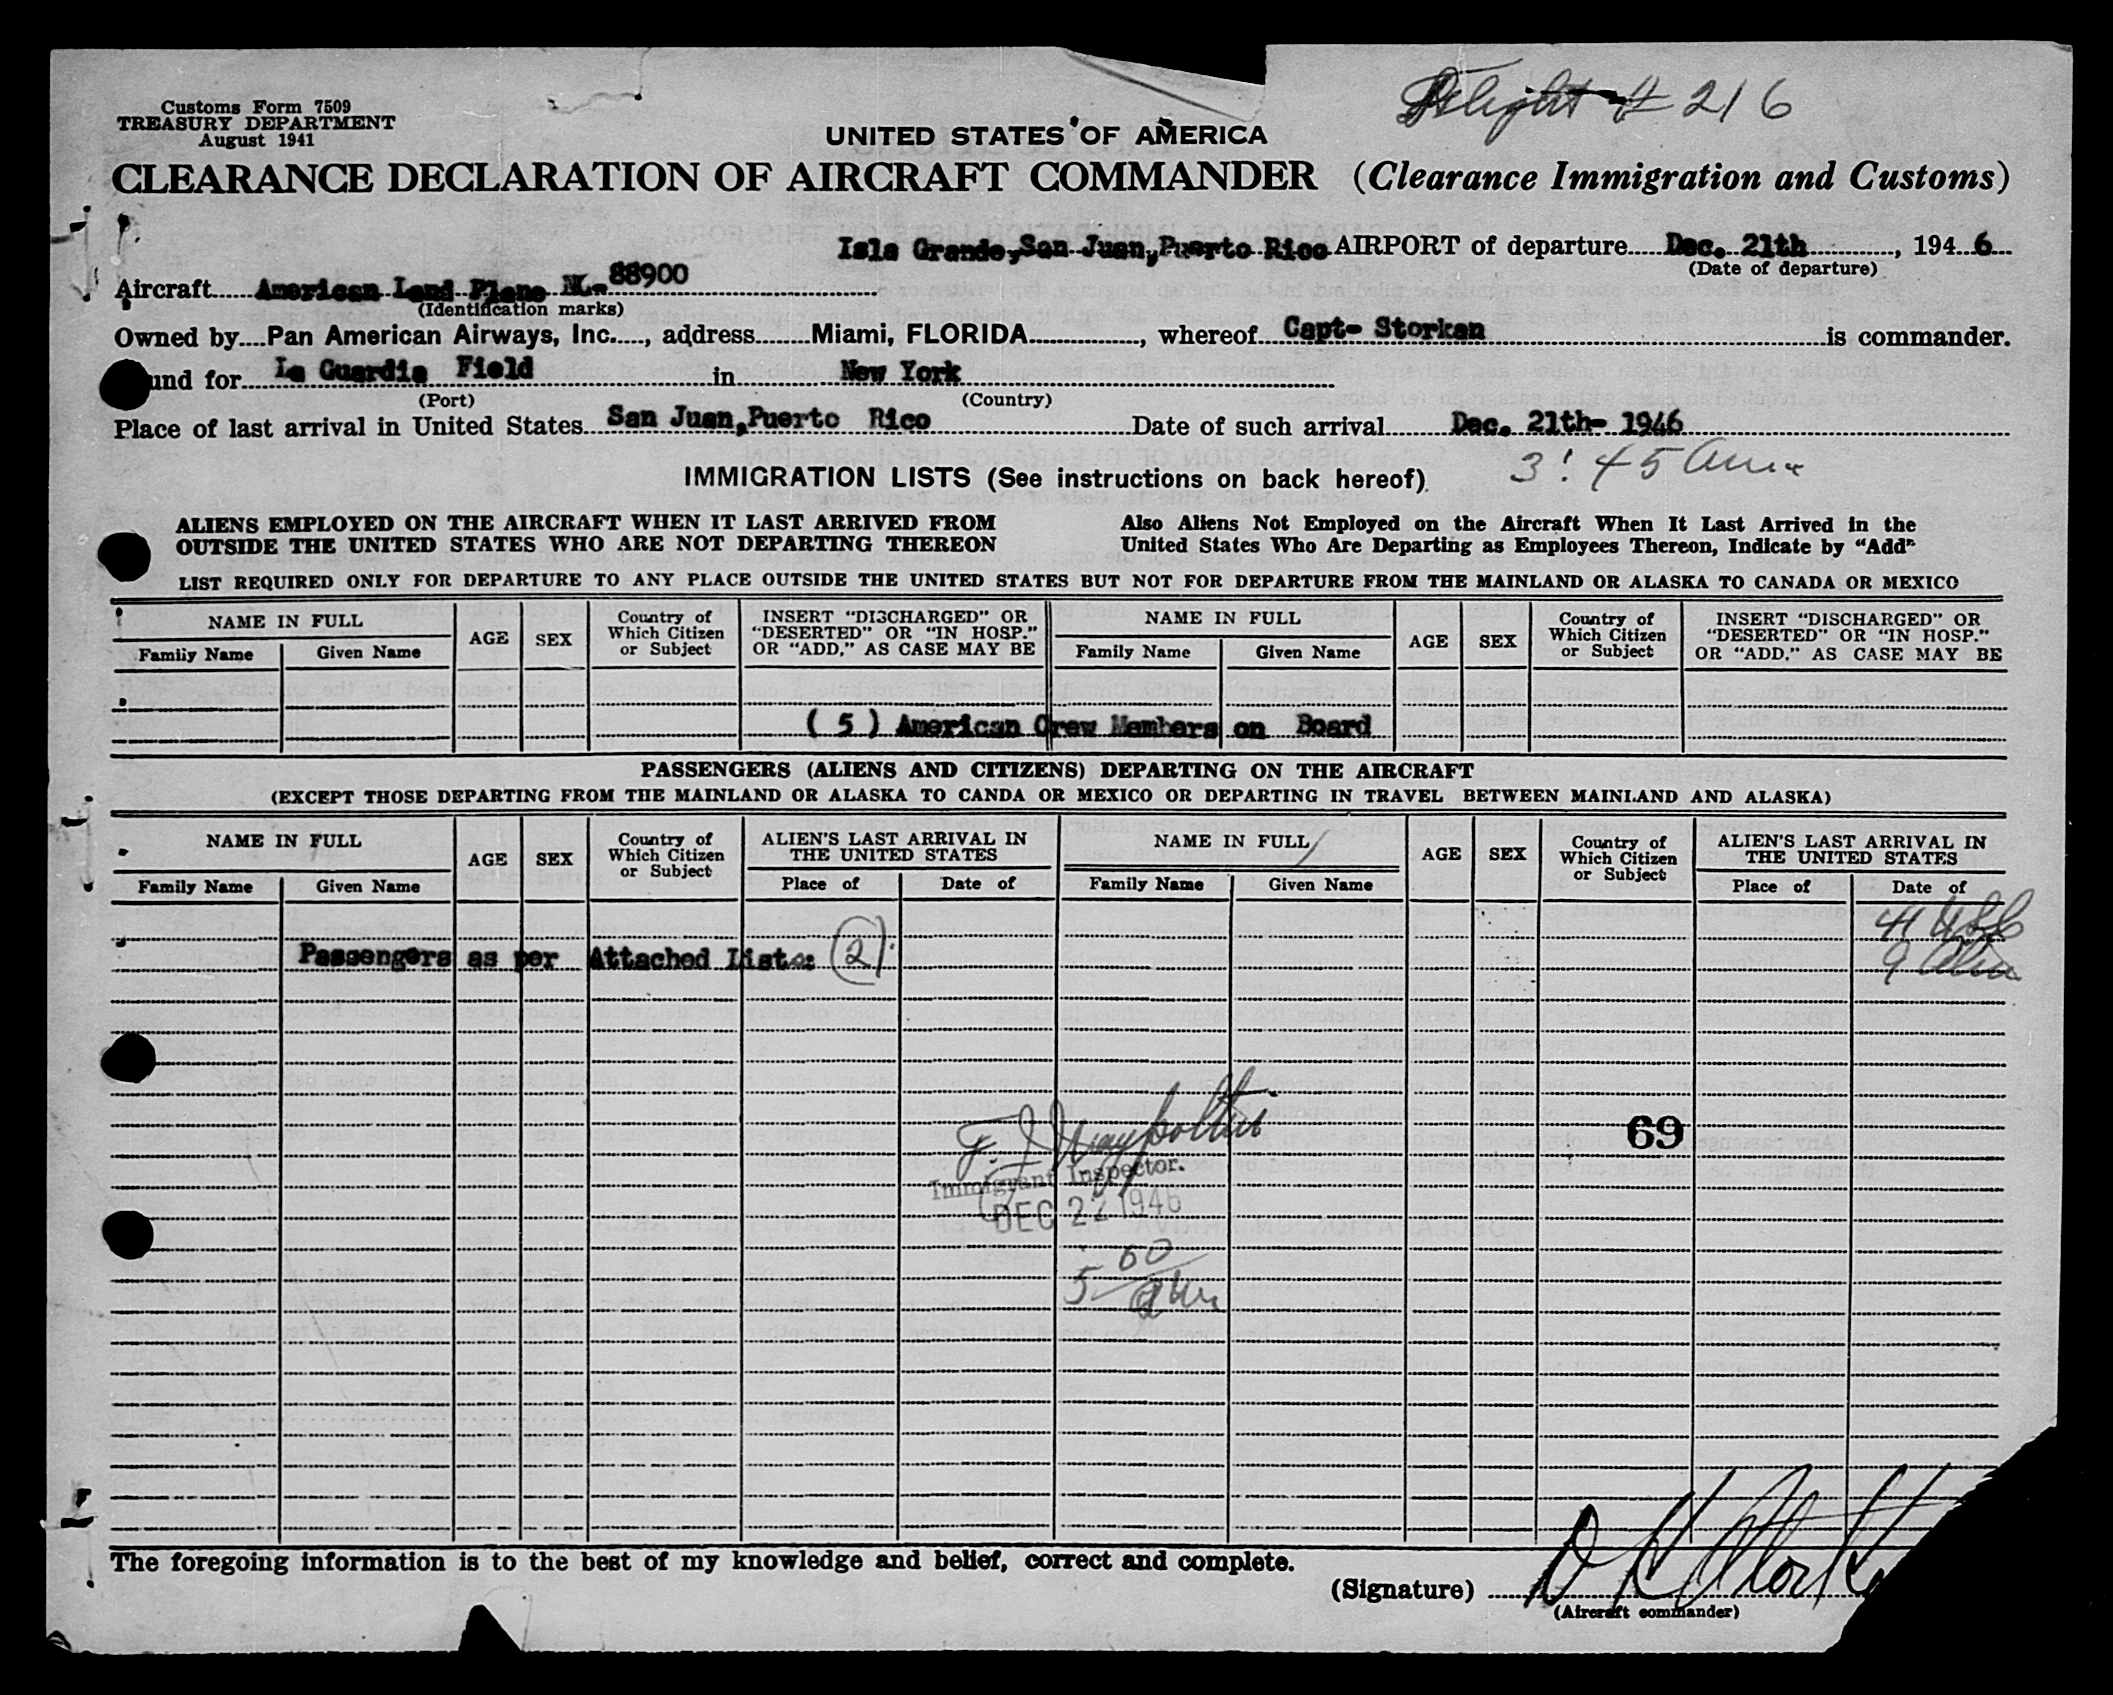 Flight # 216
Customs Form 7509
TREASURY DEPARTMENT
August 1941
UNITED STATES OF AMERICA
CLEARANCE DECLARATION OF AIRCRAFT COMMANDER (Clearance Immigration and Customs)
Isla Grande, San Juan, Puerto Rico AIRPORT of departure Dec. 21th, 1946
(Date of departure)
Aircraft American Land Plane NL-88900
(Identification marks)
Owned by Pan American Airways, Inc., address Miami, FLORIDA, whereof Capt- Storken is commander.
und for La Guardia Field in New York
(Port) (Country)
Place of last arrival in United States San Juan, Puerto Rico Date of such arrival Dec. 21th- 1946
3:45 am
IMMIGRATION LISTS (See instructions on back hereof)
ALIENS EMPLOYED ON THE AIRCRAFT WHEN IT LAST ARRIVED FROM Also Aliens Not Employed on the Aircraft When It Last Arrived in the
OUTSIDE THE UNITED STATES WHO ARE NOT DEPARTING THEREON United States Who Are Departing as Employees Thereon, Indicate by "Add"
LIST REQUIRED ONLY FOR DEPARTURE TO ANY PLACE OUTSIDE THE UNITED STATES BUT NOT FOR DEPARTURE FROM THE MAINLAND OR ALASKA TO CANADA OR MEXICO
NAME IN FULL AGE SEX Country of Which Citizen or Subject INSERT "DISCHARGED" OR "DESERTED" OR "IN HOSP." OR "ADD," AS CASE MAY BE NAME IN FULL AGE SEX Country of Which Citizen or Subject INSERT "DISCHARGED" OR "DESERTED" OR "IN HOSP." OR "ADD," AS CASE MAY BE
Family Name Given Name Family Name Given Name
( 5 ) American Crew Members on Board
PASSENGERS (ALIENS AND CITIZENS) DEPARTING ON THE AIRCRAFT
(EXCEPT THOSE DEPARTING FROM THE MAINLAND OR ALASKA TO CANDA OR MEXICO OR DEPARTING IN TRAVEL BETWEEN MAINLAND AND ALASKA)
NAME IN FULL AGE SEX Country of Which Citizen or Subject ALIEN'S LAST ARRIVAL IN THE UNITED STATES NAME IN FULL AGE SEX Country of Which Citizen or Subject ALIEN'S LAST ARRIVAL IN THE UNITED STATES
Family Name Given Name Place of Date of Family Name Given Name Place of Date of
41 USC
Passengers as per Attached Lists: (2)
9
69
F. J.
Immigrant Inspector.
DEC 22 1946
60
5
The foregoing information is to the best of my knowledge and belief, correct and complete.
(Signature)
(Aircraft commander)